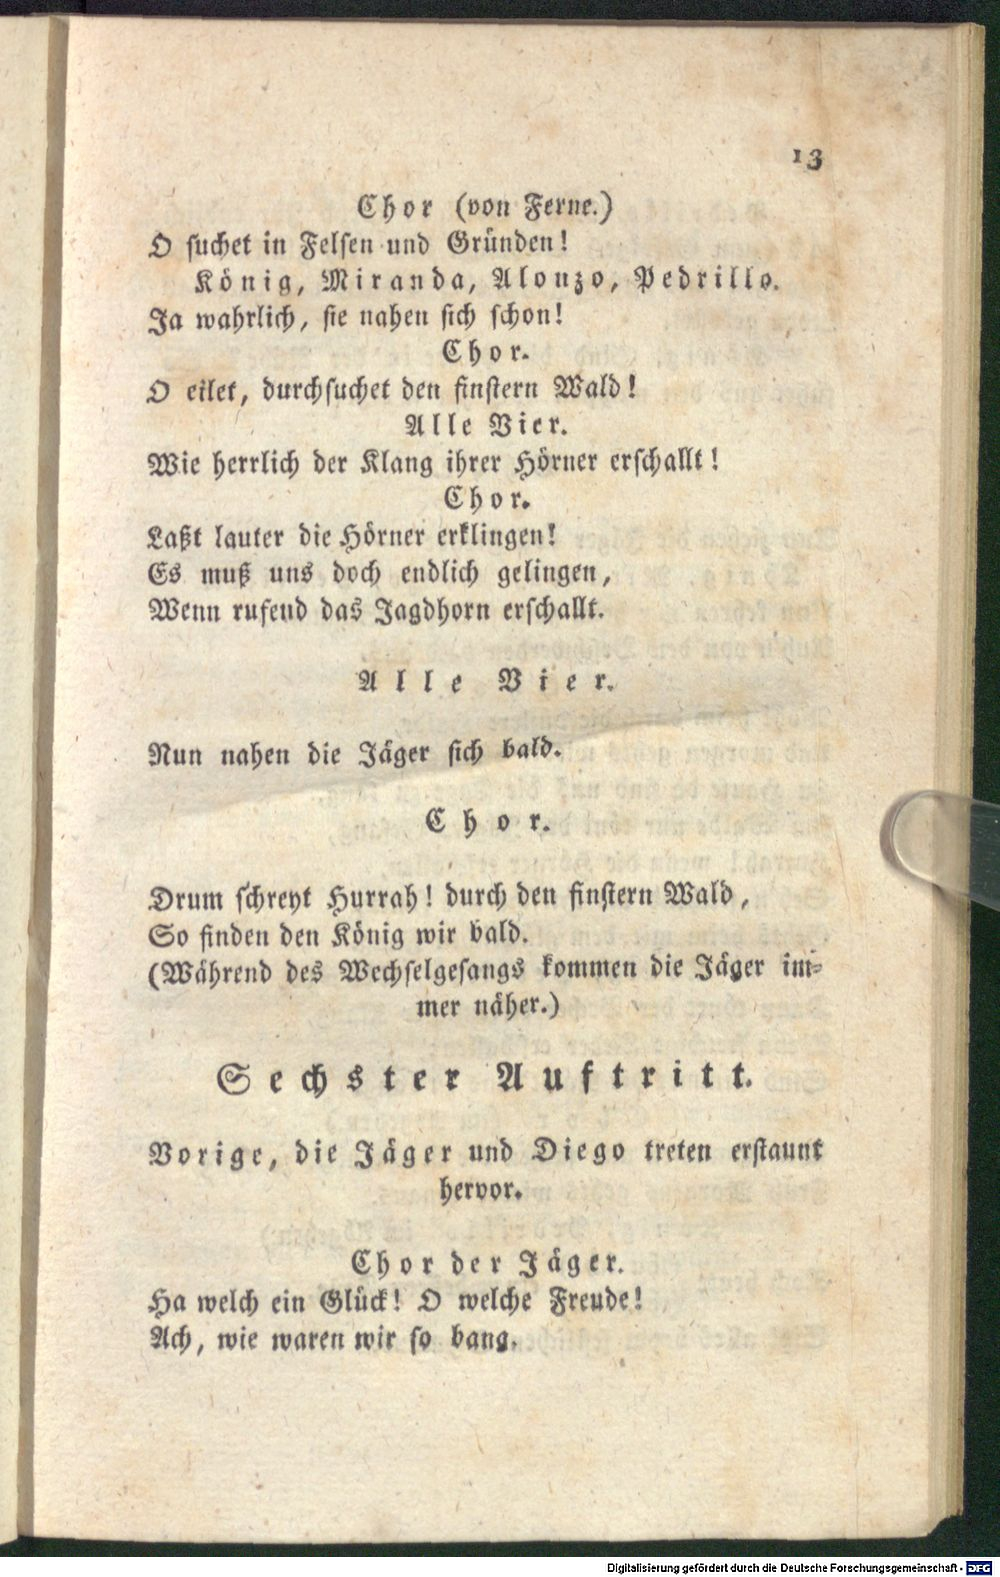 13
Chor (von Ferne.)
O suchet in Felsen und Gründen!
König, Miranda, Alonzo, Pedrillo.
Ja wahrlich, sie nahen sich schon!
Chor.
O eilet, durchsuchet den finstern Wald!
Alle Vier.
Wie herrlich der Klang ihrer Hörner erschallt!
Chor.
Laßt lauter die Hörner erklingen!
Es muß uns doch endlich gelingen,
Wenn rufend das Jagdhorn erschallt.
Alle Vier.
Nun nahen die Jäger sich bald.
Chor.
Drum schreyt Hurrah! durch den finstern Wald,
So finden den König wir bald.
(Während des Wechselgesangs kommen die Jäger im-
mer näher.)
Sechster Auftritt.
Vorige, die Jäger und Diego treten erstaunt
hervor.
Chor der Jäger.
Ha welch ein Glück! O welche Freude!
Ach, wie waren wir so bang.
Digitalisierung gefördert durch die Deutsche Forschungsgemeinschaft - DFG